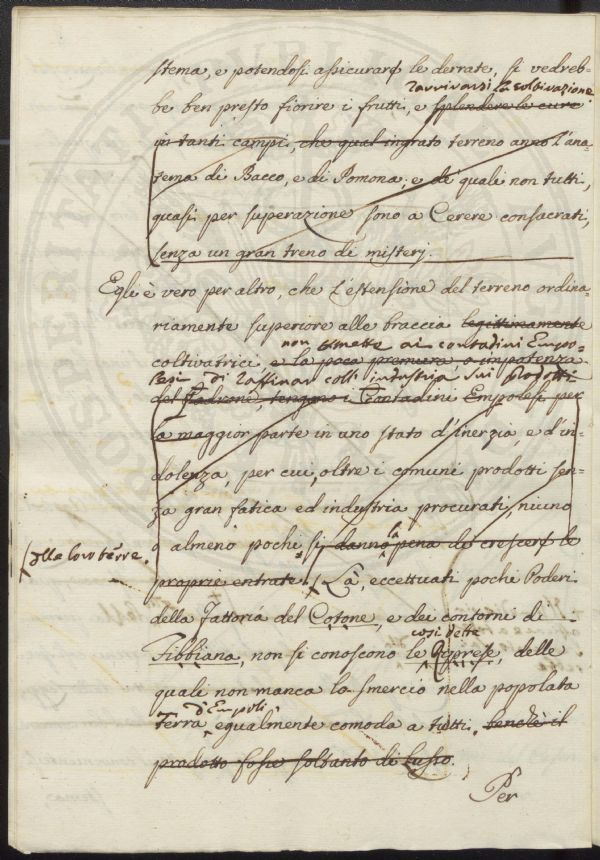 stema, e potendosi assicurare le derrate, si vedreb-
ravvivarsi la coltivazione
be ben presto fiorire i frutti, e splendere le cure
in tanti campi, che qual ingrato terreno anno l'ana-
tema di Bacco, e di Pomona, e de' quali non tutti,
quasi per superazione sono a Cerere consacrati,
senza un gran treno di misterj.
Egli è vero per altro, che l'estensione del terreno ordina-
riamente superiore alle braccia legittimamente
non permette ai contadini Empo-
coltivatrici, e la poca premura, o impotenza
lesi di raffinar coll' industria sui prodotti
del Padrone, tengano i Contadini Empolesi per
la maggior parte in uno stato d'inerzia e d'in-
dolenza, per cui, oltre i comuni prodotti sen-
za gran fatica ed industria procurati, niuno
o almeno pochi si danno la pena di crescere le
delle loro terre.
proprie entrate. Là, eccettuati pochi Poderi
della Fattoria del Cotone, e dei contorni di
così dette
Fibbiana, non si conoscono le, delle
quali non manca lo smercio nella popolata
d'Empoli
Terra, egualmente comoda a tutti, benchè il
prodotto fosse soltanto di lusso.
Per